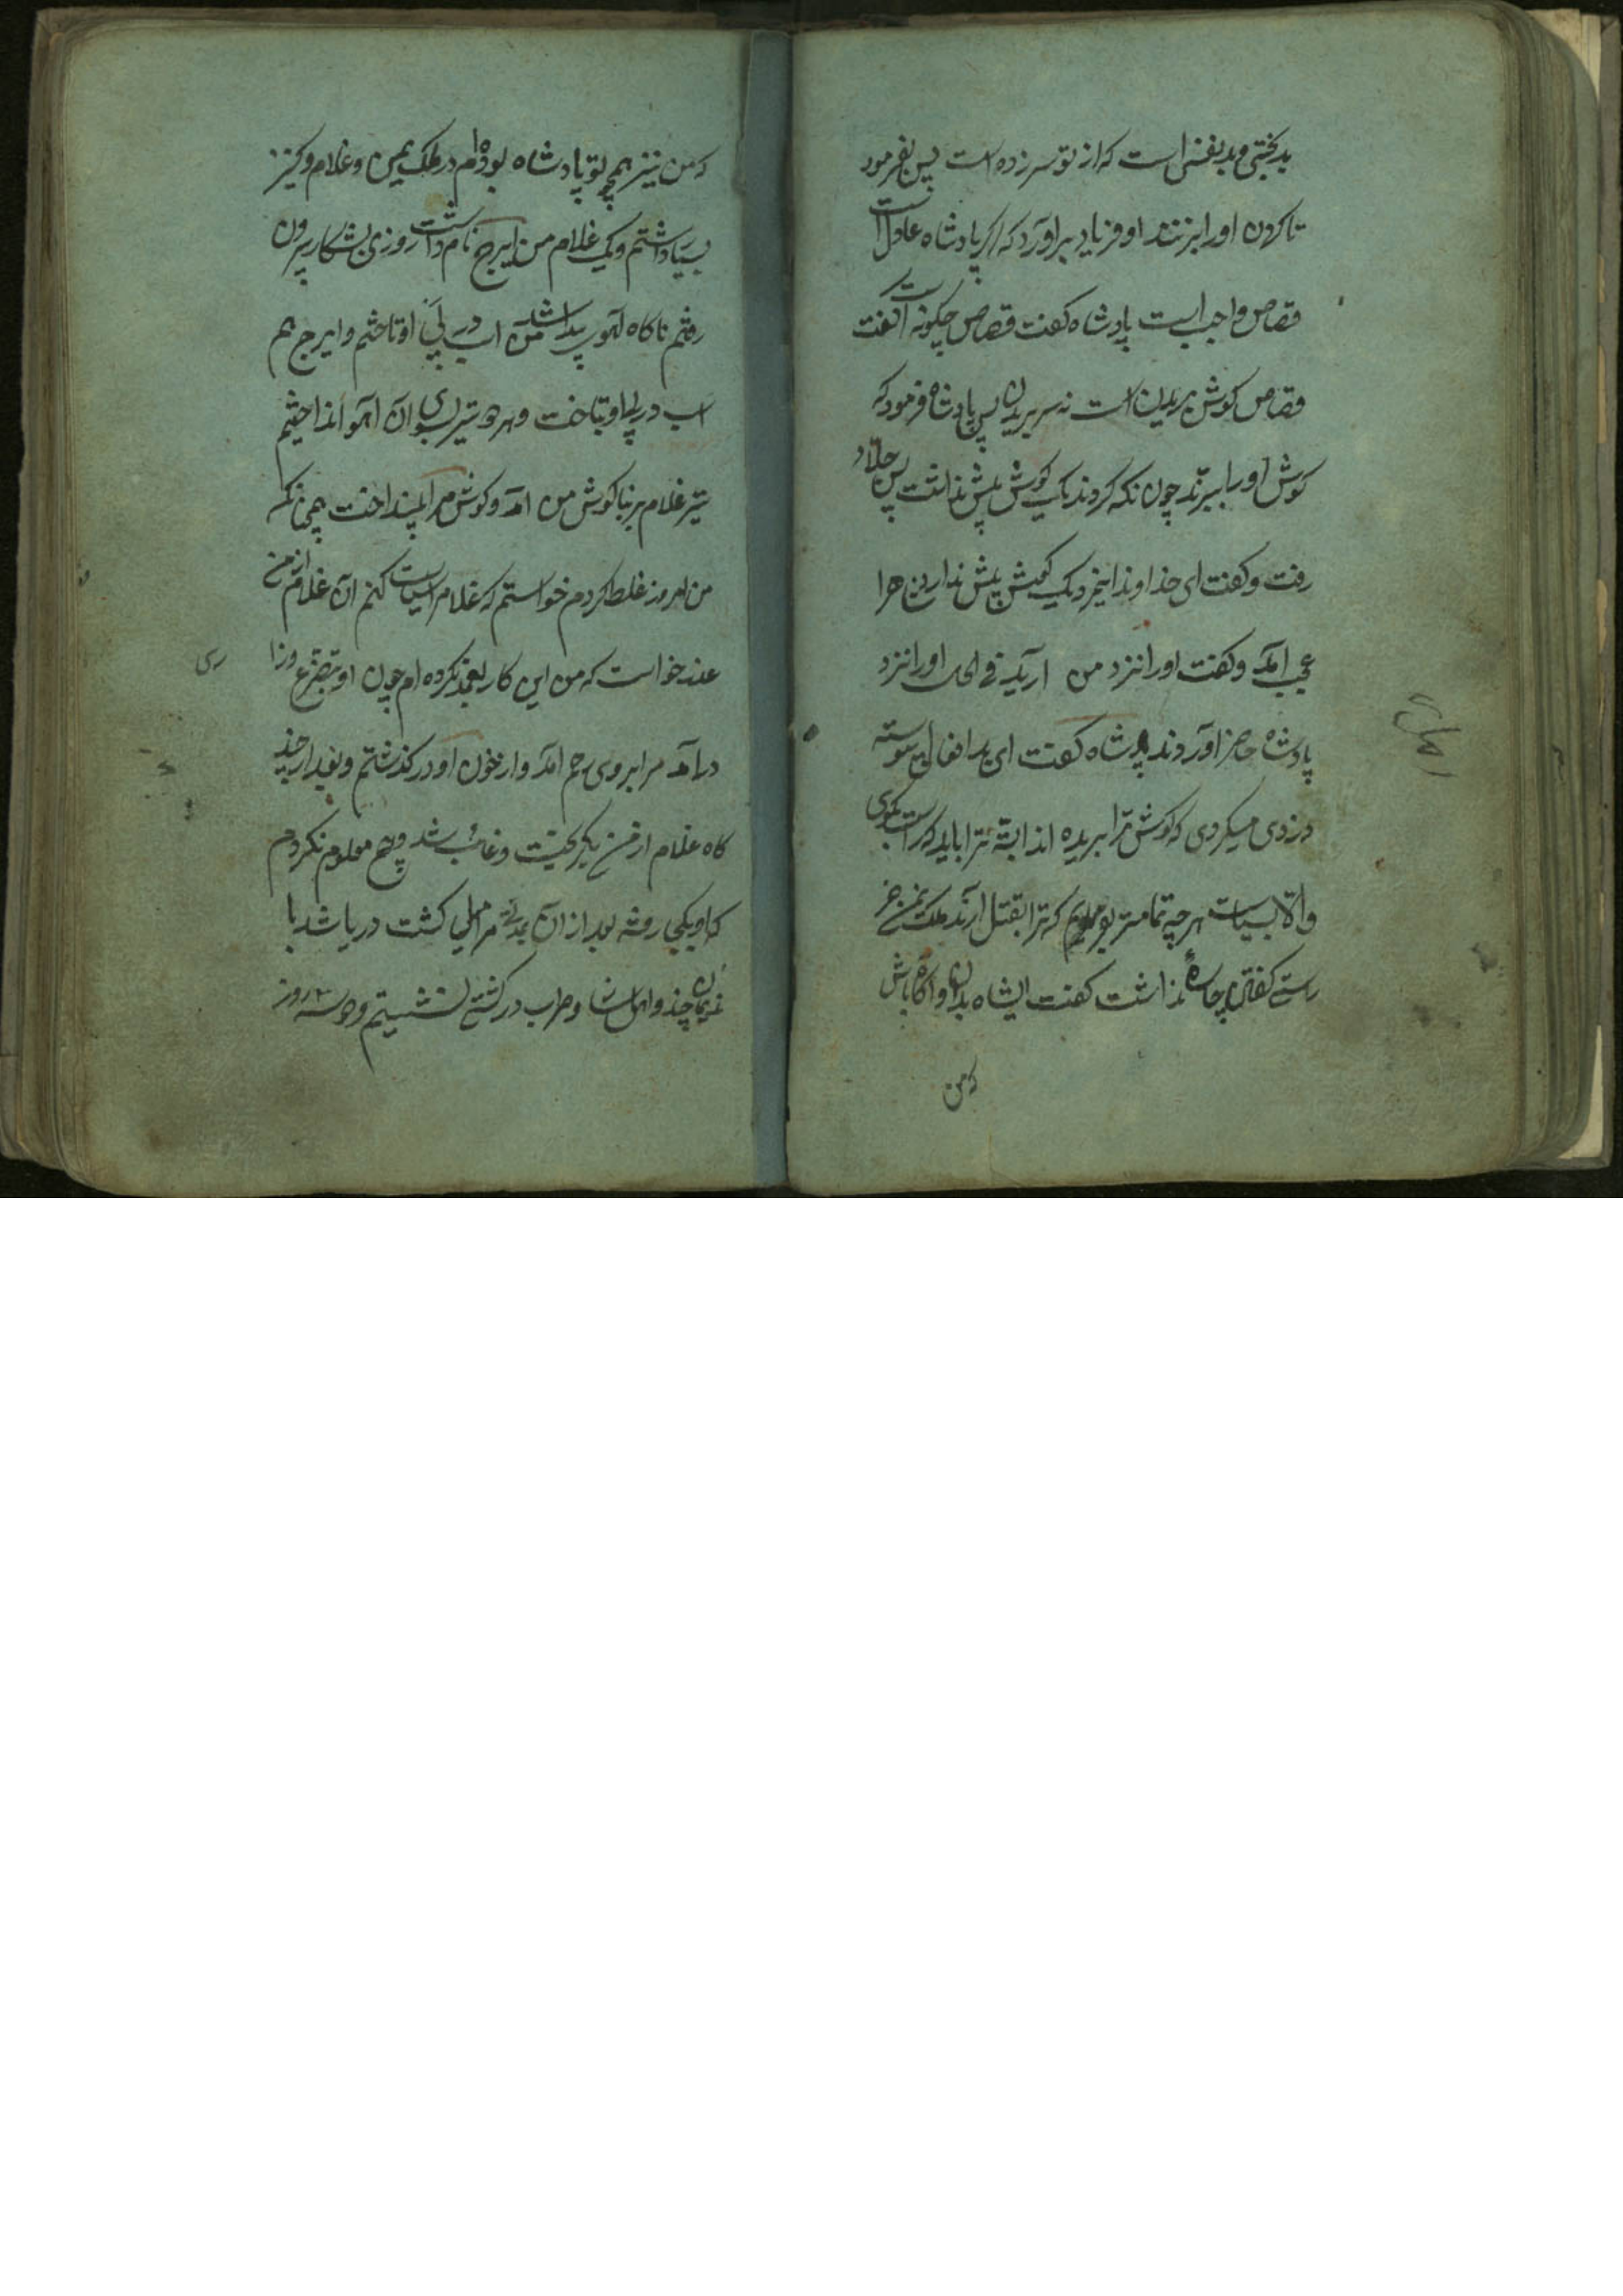 بدبختی و بدنفسی است که از تو سرزده است پس بفرمود
تا کردن او را بزنند او فریاد برآورد که اکر پادشاه عادل است
قصاص واجب است پادشاه کفت قصاص چکونه است کفت
قصاص کوش بریدن است نه سر بریدن پس پادشاه فرمود که
کوش او را ببرند چون نکه کردند یک کوش پیش نداشت پس جلاد
رفت و کفت ای خداوند این دزد یک کوش پیش ندارد
عجب آمد و کفت او را نزد من آرید فی الحال او را نزد
پادشاه حاضر آوردند پادشاه کفت ای بد افعال پیوسته
دزدی میکردی که کوش ترا بریده اند البته ترا باید که راست بکوی
والا بسیاست هرچه تمامتر بفرمایم که ترا بقتل آرند ملک یمن جز
راستی کفتن چاره نداشت کفت ای شاه بدان و آکاه باش
که من
که من نیز همچو تو پادشاه بوده ام در ملک یمن و غلام و کنیز
بسیار داشتم و یک غلام من ایرج نام داشت روزی بشکار بیرون
رفتم ناکاه آهو پیدا شد من اسپ در پی او تاختم و ایرج هم
اسپ در پی او تاخت و هر دو تیر بسوی آن آهو انداختیم
تیر غلام بر بناکوش من آمد و کوش مرا بینداخت همچنانکه
من امروز غلط کردم خواستم که غلام را سیاست کنم آن غلام از من
عذر خواست که من این کار بعمد نکرده ام چون او بتضرع و زا
ری
درآمد مرا بر وی رحم آمد و از خون او درکذشتم و بعد از چند
کاه غلام از من بکریخت و غائب شد و هیچ معلوم نکردم
که او بکجا رفته بعد از آن مدتی مرا میل کشت دریا شد با
ندیمان چند و اهل نشاط و طرب در کشتی نشستیم و دو سه روز